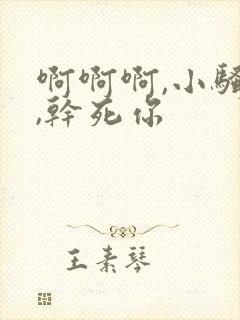 啊啊啊,小騷
,幹死你
王素琴